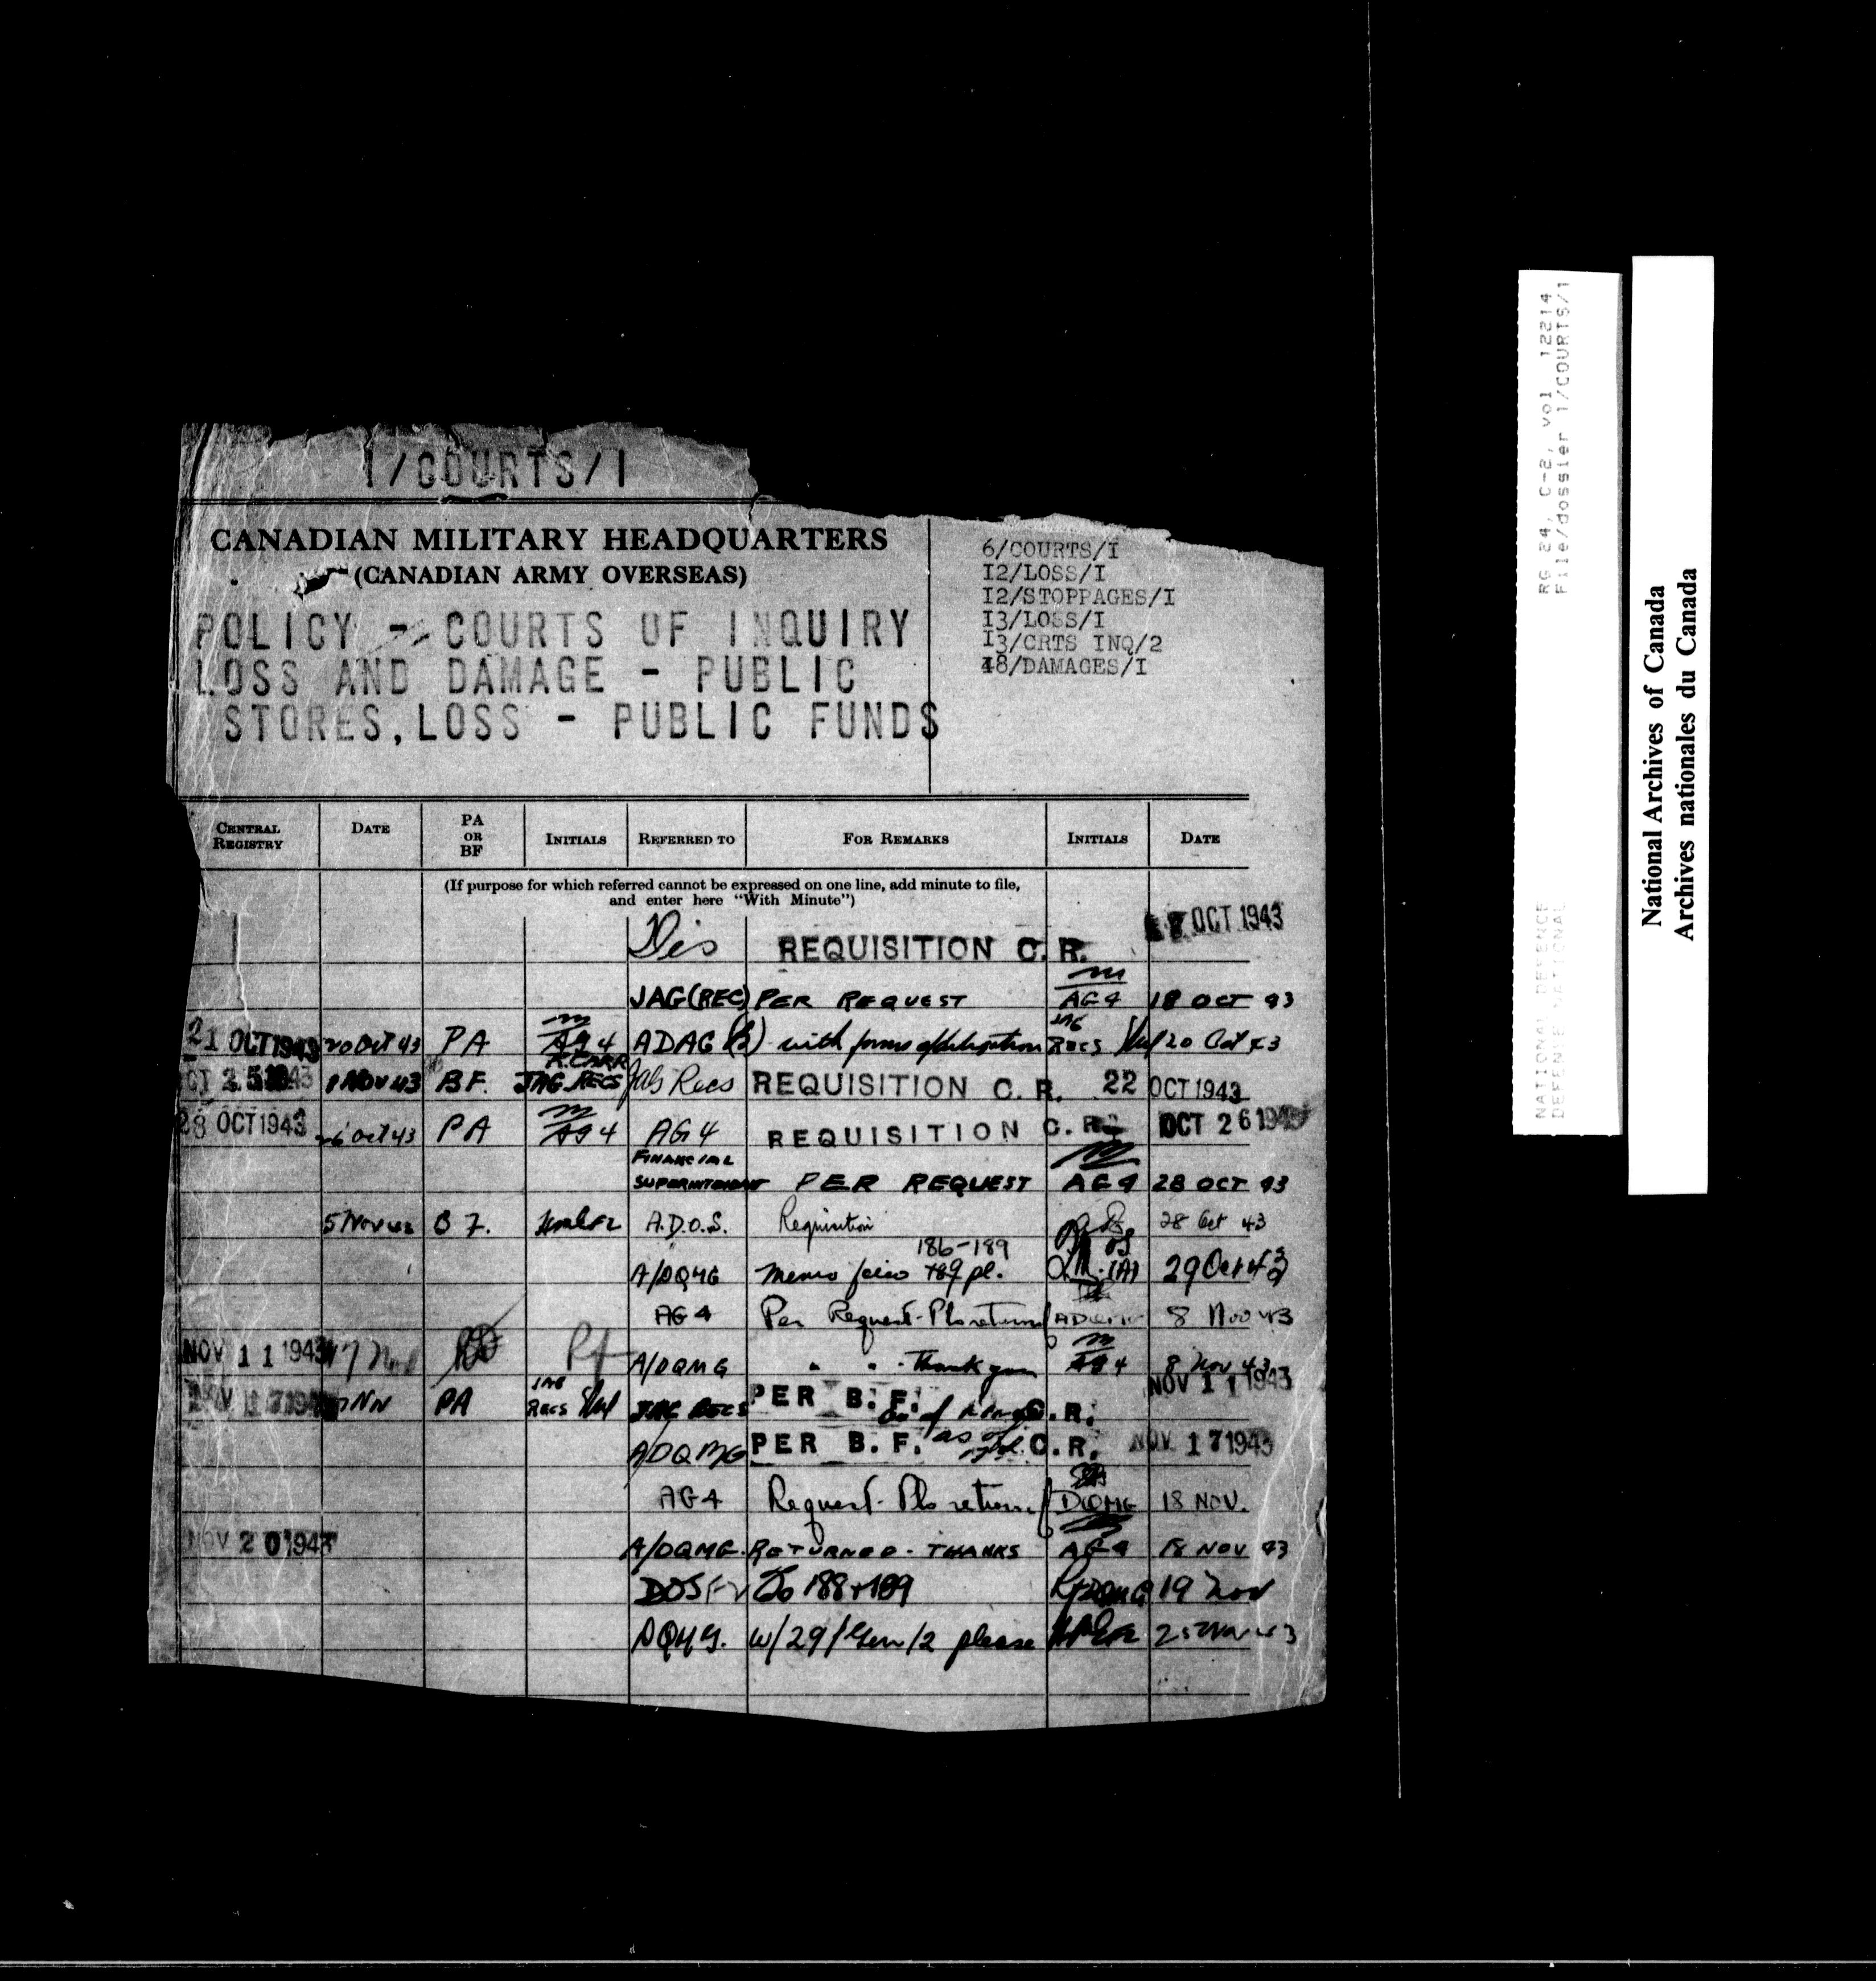 1/COURTS/1
CANADIAN MILITARY HEADQUARTERS
(CANADIAN ARMY OVERSEAS)
POLICY - COURTS OF INQUIRY
LOSS AND DAMAGE - PUBLIC
STORES, LOSS - PUBLIC FUNDS
6/COURTS/I
I2/LOSS/I
I2/STOPPAGES/I
I3/LOSS/I
I3/CRTS INQ/2
48/DAMAGES/I
CENTRAL REGISTRY DATE PA OR BF INITIALS REFERRED TO FOR REMARKS INITIALS DATE
(If purpose for which referred cannot be expressed on one line, add minute to file,
and enter here "With Minute")
REQUISITION C.R. OCT 1943
JAG (REC) PER REQUEST AG4 18 OCT 43
21 OCT 1943 20 Oct 43 PA AG4 ADAG with forms Recs 20 Oct 43
OCT 25 1943 1 NOV 43 BF. A. CARR JAG RECS JAG Recs REQUISITION C.R. 22 OCT 1943
28 OCT 1943 26 Oct 43 PA AG4 AG4 REQUISITION C.R. OCT 26 1943
FINANCIAL SUPERINTENDENT PER REQUEST AG4 28 OCT 43
5 Nov B F. A.D.O.S. Requisition 28 Oct 43
A/DQMG Memo 186-189 pl. 29 Oct 43
AG4 Per Request - Pls return 8 Nov 43
NOV 11 1943 A/DQMG " " - Thank you AG4 8 Nov 43
NOV 17 1943 PA JAG Recs JAG RECS PER B.F. C.R. NOV 11 1943
A/DQMG PER B.F. as of C.R. NOV 17 1943
AG4 Request - Pls return DQMG 18 NOV.
NOV 20 1943 A/DQMG. RETURNED - THANKS AG4 18 NOV 43
DOS To 188 + 189 19 Nov
DQMG. w/29/Gen/2 please
RG 24, C-2, vol 12214
File/dossier 1/COURTS/1
NATIONAL DEFENCE
DEFENSE NATIONAL
National Archives of Canada
Archives nationales du Canada